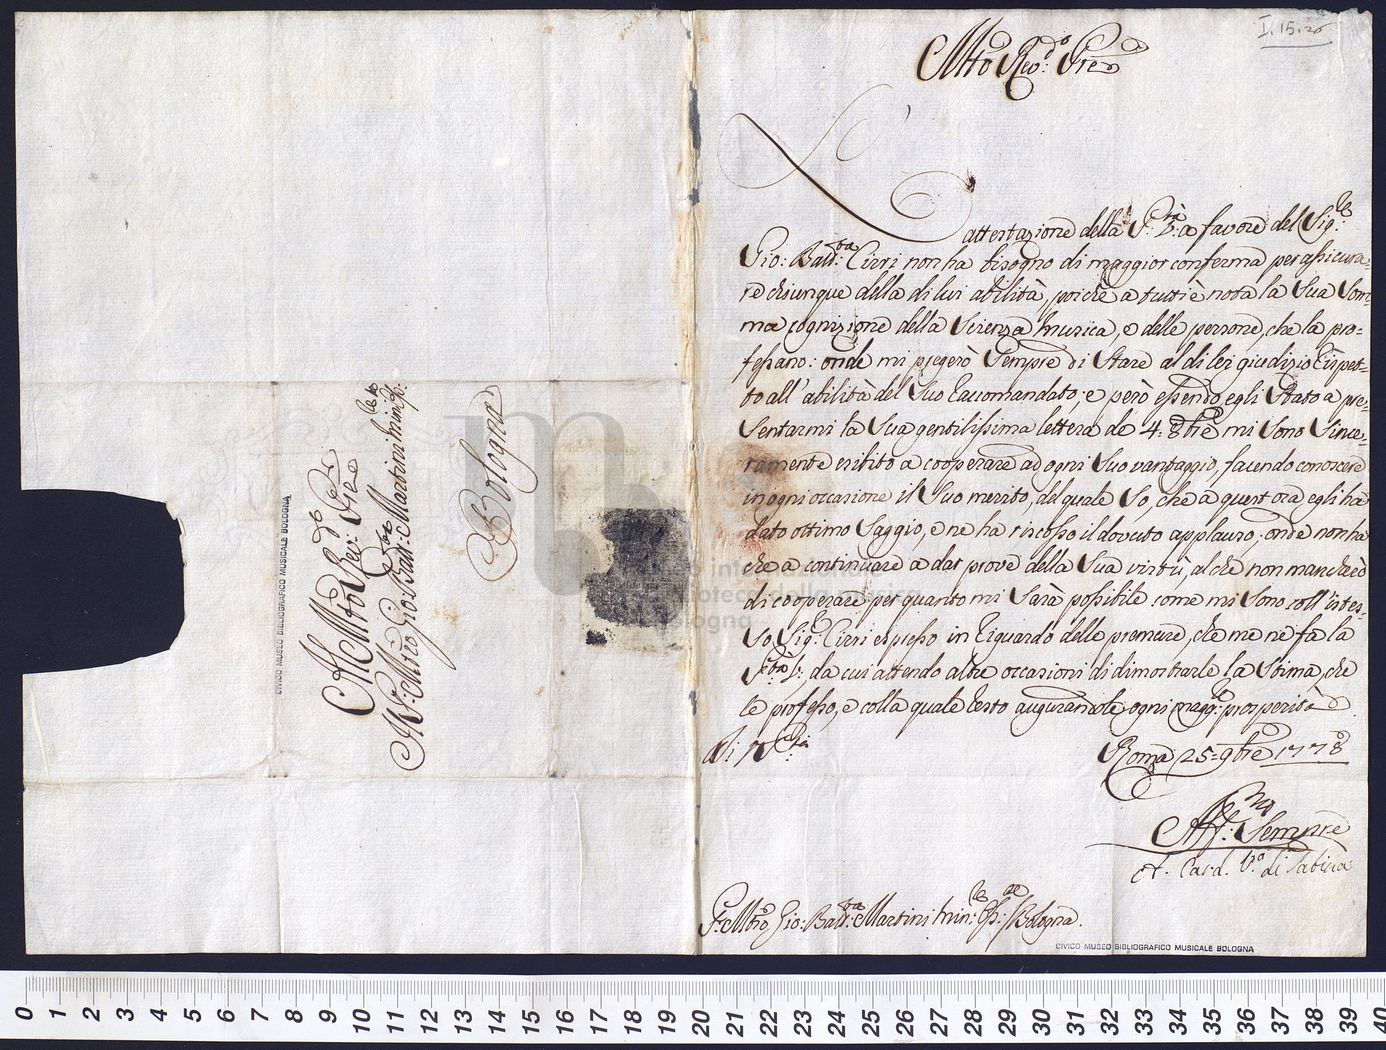 I. 15. 26
M̃to Rev:do Pre
L'attestazione della P. V.ra a favore del Sig:re
Gio: Batt:ta Cieri non ha bisogno di maggior conferma per assicura-
re chiunque della di lui abilità, poichè a tutti è nota la Sua Som-
ma cognizione della Scienza Musica, e delle persone, che la pro-
fessano: onde mi pregerò Sempre di Stare al di lei giudizio rispet-
to all'abilità del Suo raccomandato; e però essendo egli Stato a pre-
Sentarmi la Sua gentilissima lettera de 4: 8bre mi Sono Since-
ramente esibito a cooperare ad ogni Suo vantaggio, facendo conoscere
in ogni occasione il Suo merito, del quale So, che a quest'ora egli ha
dato ottimo Saggio, e ne ha riscosso il dovuto applauso; onde non ha
che a continuare a dar prove della Sua virtù, al che non mancherò
di cooperare per quanto mi Sarà possibile come mi Sono coll'istes-
So Sig:r Cieri espresso in riguardo delle premure, che me ne fa la
P.tà V: da cui attendo altre occasioni di dimostrarle la Stima, che
le professo, e colla quale resto augurandole ogni magg:r prosperità
Di V. P.tà
Roma 25: 9bre 1778
Aff:mo Sempre
Card. V.o di Sabina
P. M̃ro Gio: Batt:ta Martini Min:re Bologna.
CIVICO MUSEO BIBLIOGRAFICO MUSICALE BOLOGNA
Al M̃to Rev:do Pre
Il P: M̃ro Gio: Batt:ta Martini Min:re
Bologna
CIVICO MUSEO BIBLIOGRAFICO MUSICALE BOLOGNA
museo internazionale
e biblioteca della musica
di bologna
0 1 2 3 4 5 6 7 8 9 10 11 12 13 14 15 16 17 18 19 20 21 22 23 24 25 26 27 28 29 30 31 32 33 34 35 36 37 38 39 40